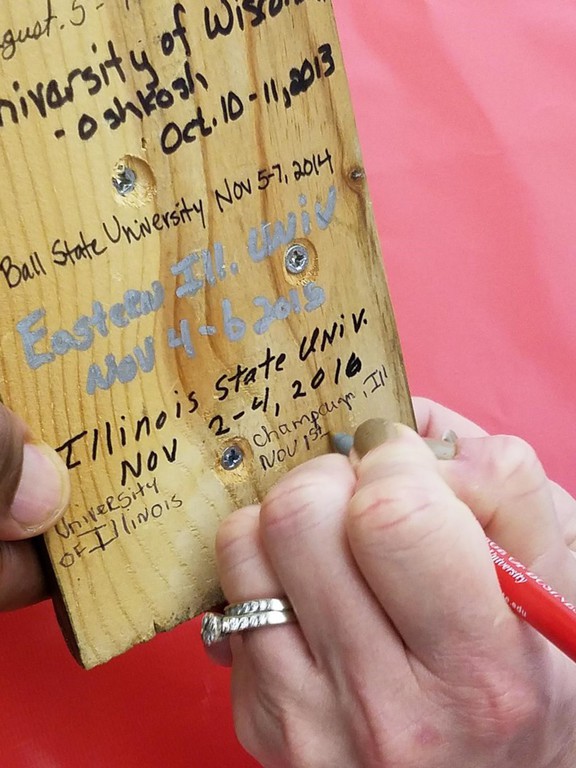 August. 5 -
University of Wiscon
- Oshkosh
Oct. 10 - 11, 2013
Ball State University Nov 5-7, 2014
Eastern Ill. Univ
Nov 4-6 2015
Illinois State Univ.
Nov 2-4, 2016
University
of Illinois
Champaign, Ill
Nov 1st
University
.edu